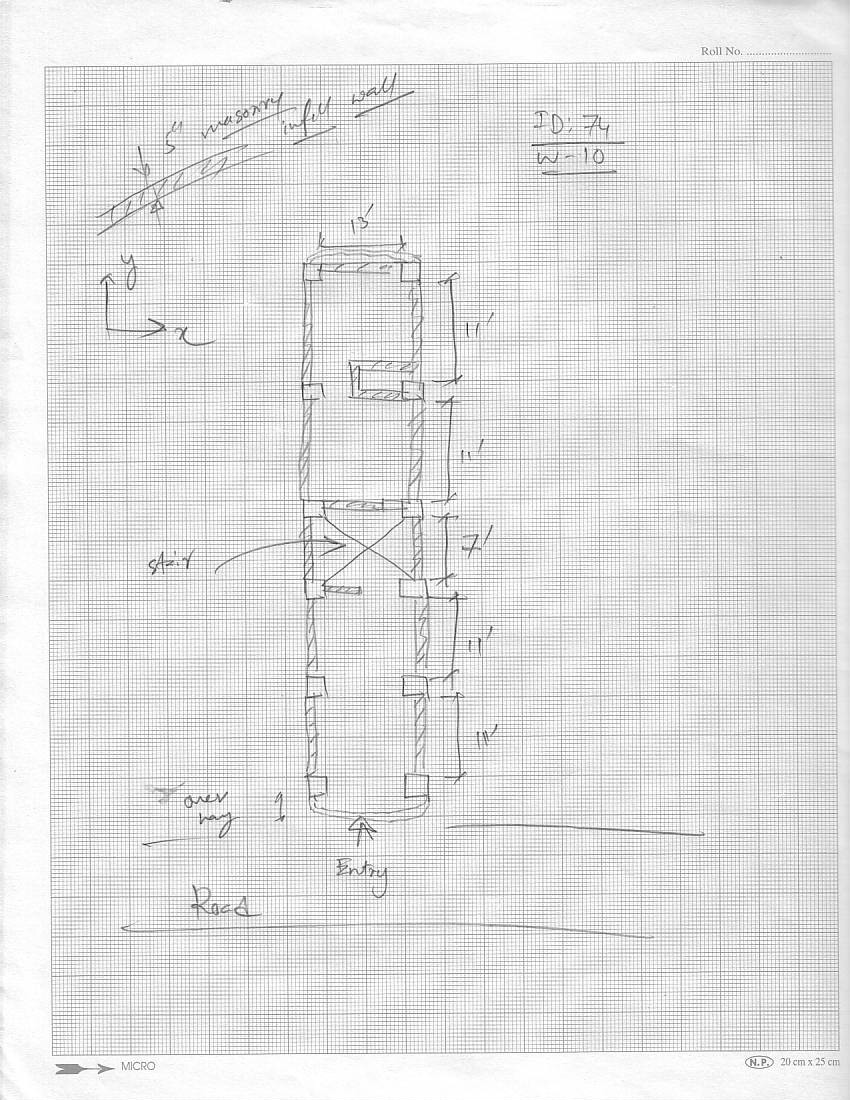 Roll No. ..............................
5" masonry infill wall
ID: 74
W-10
13'
y
x
11'
11'
7'
stair
11'
11'
over
Entry
Road
MICRO
N.P. 20 cm x 25 cm